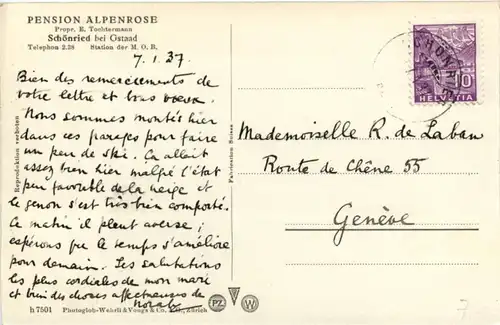 PENSION ALPENROSE
Propr. E. Tochtermann
Schönried bei Gstaad
Telephon 2.38 Station der M. O. B.
7.1.37.
Bien des remerciements de
votre lettre et bons vœux.
Nous sommes montés hier
dans ces parages pour faire
un peu de Skie. Ça allait
assez bien hier malgré l'état
peu favorable de la neige et
le genou s'est très bien comporté.
Ce matin il pleut averse;
espérons que le temps s'améliore
pour demain. Les salutations
les plus cordiales de mon mari
et bien des choses affectueuses de
h 7501 Photoglob-Wehrli & Vouga & Co. AG., Zürich
Reproduktion verboten
Fabrication Suisse
PZ W
SCHÖNRIED
10
HELVETIA
Mademoiselle R. de Laban
Route de Chêne 55
Genève
7